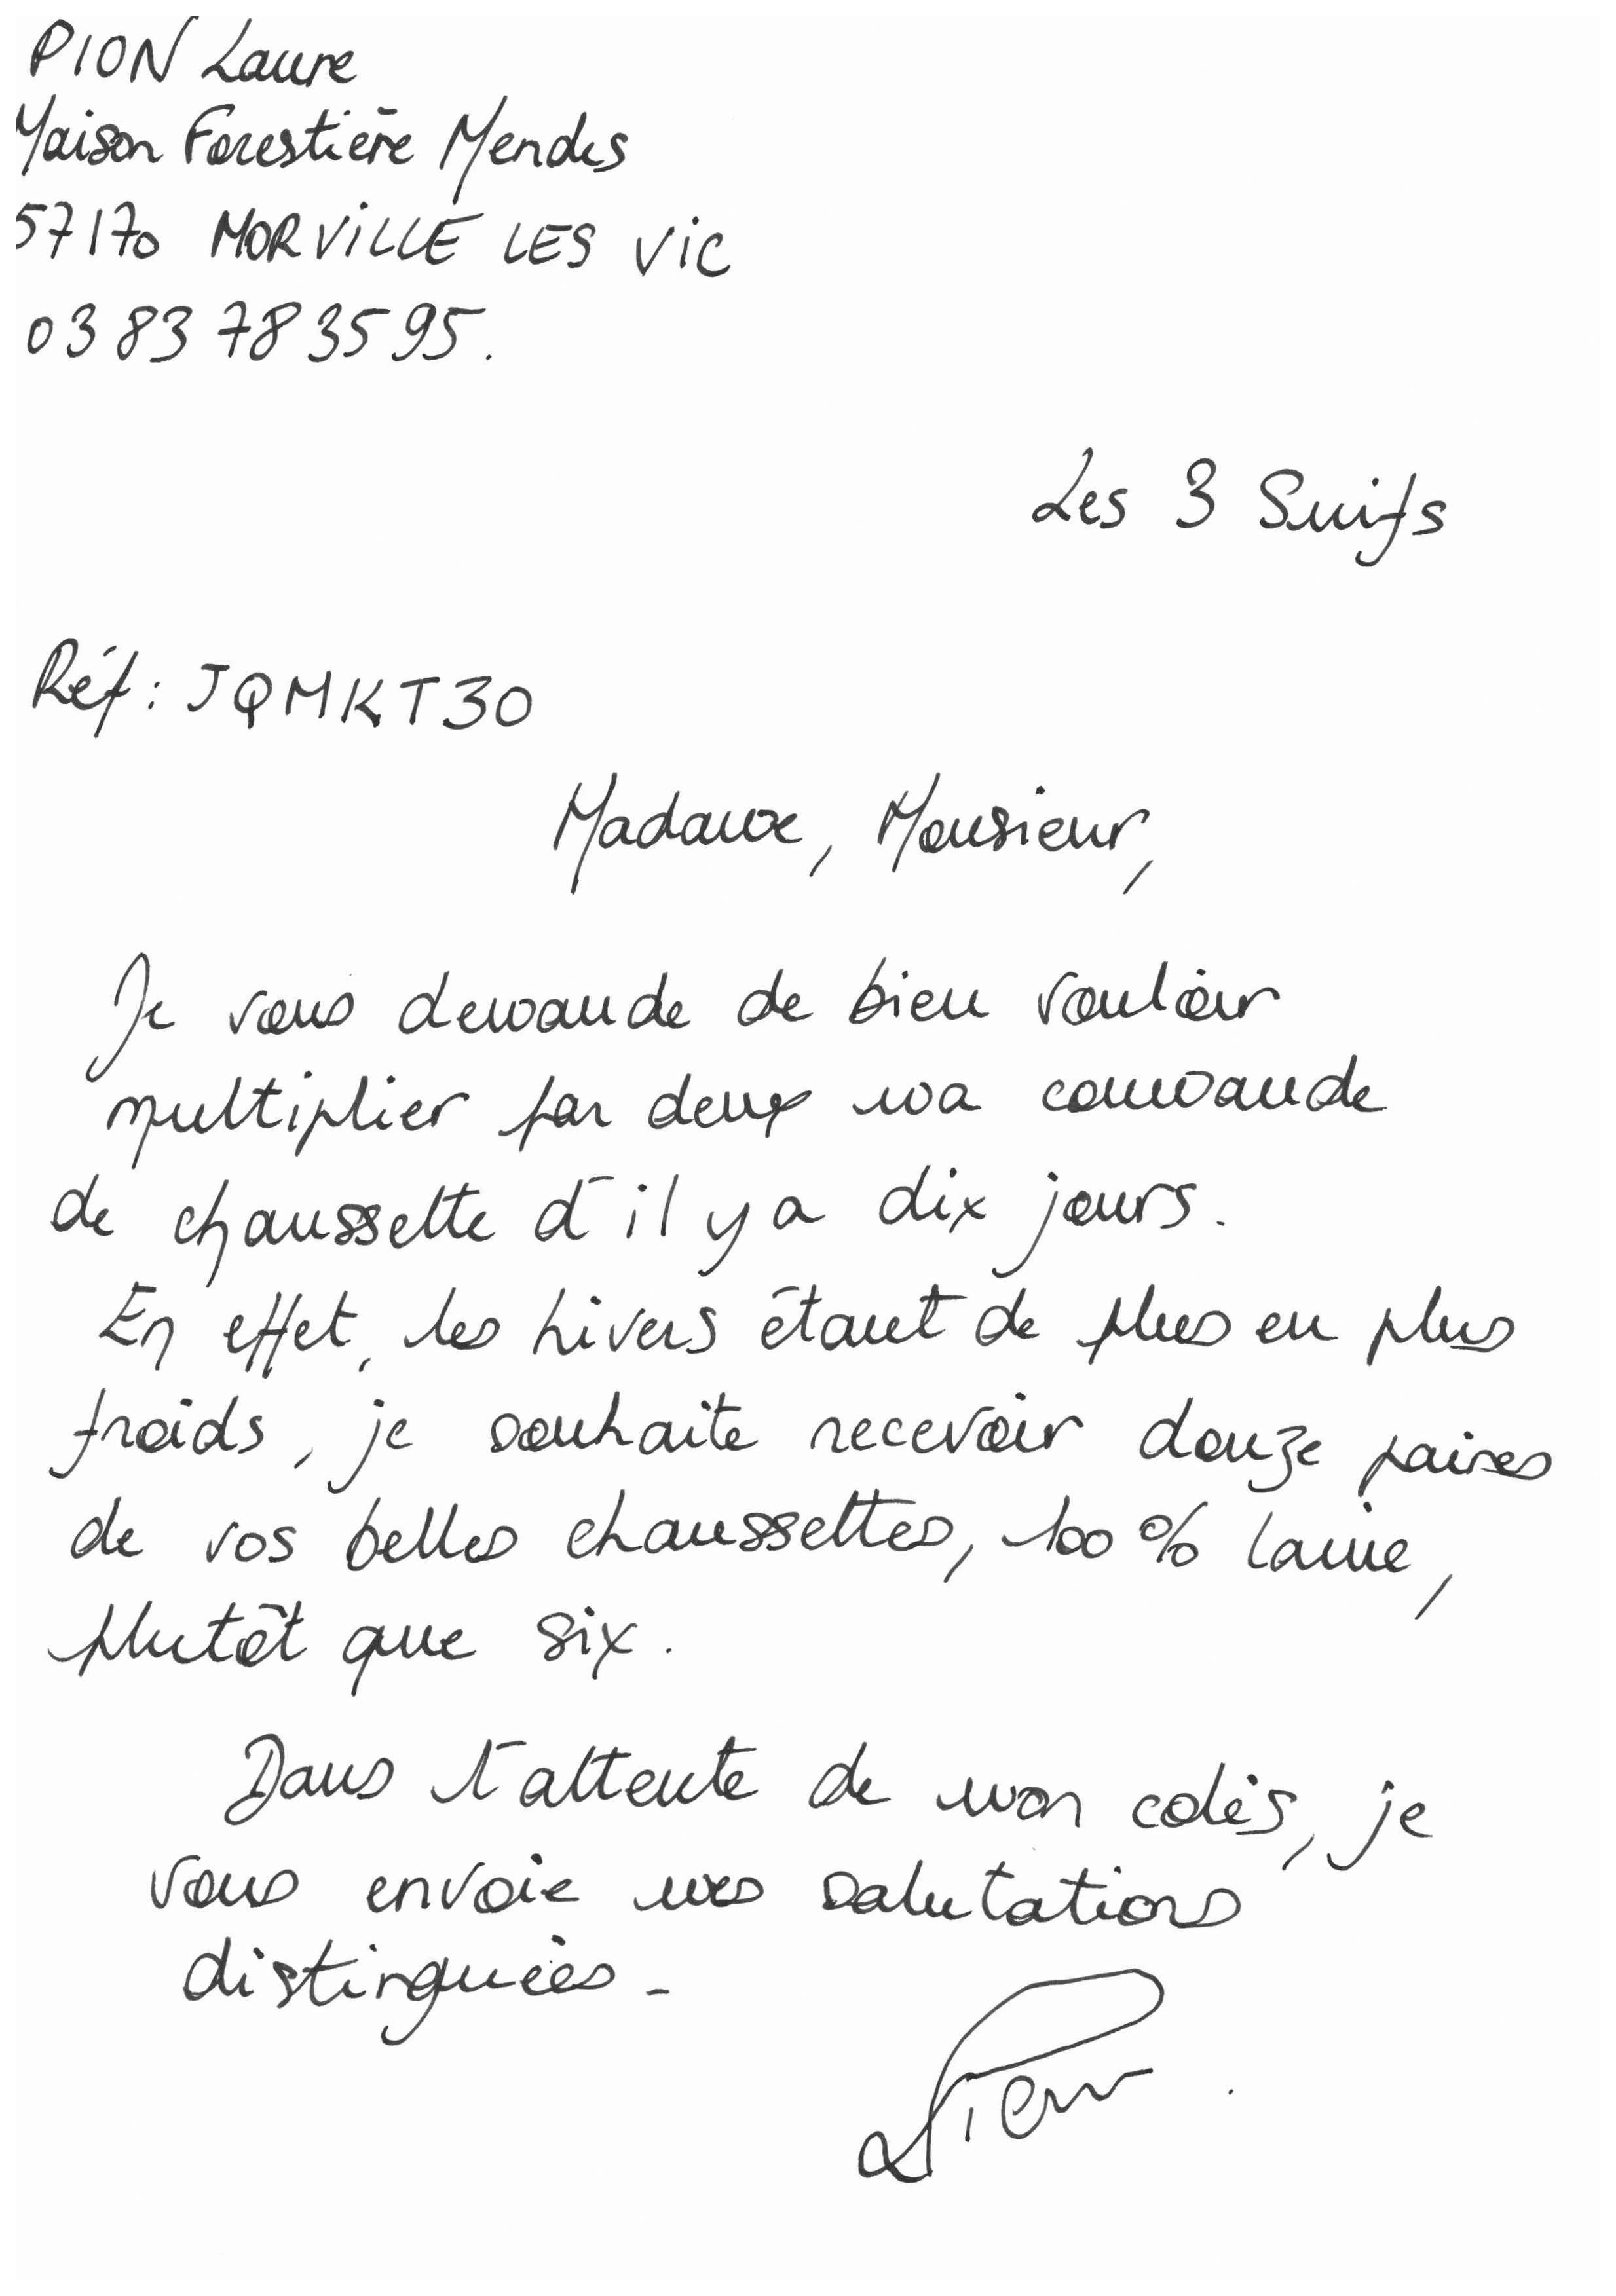 PION Laure
Maison Forestière Mendes
57170 MORVILLE LES VIC
03 83 78 35 95.
Les 3 Suifs
Réf : JQMKT30
Madame, Monsieur,
Je vous demande de bien vouloir
multiplier par deux ma commande
de chaussette d'il y a dix jours.
En effet, les hivers étant de plus en plus
froids, je souhaite recevoir douze paires
de vos belles chaussettes, 100 % laine,
plutôt que six.
Dans l'attente de mon colis, je
vous envoie mes salutations
distinguées.
LPion